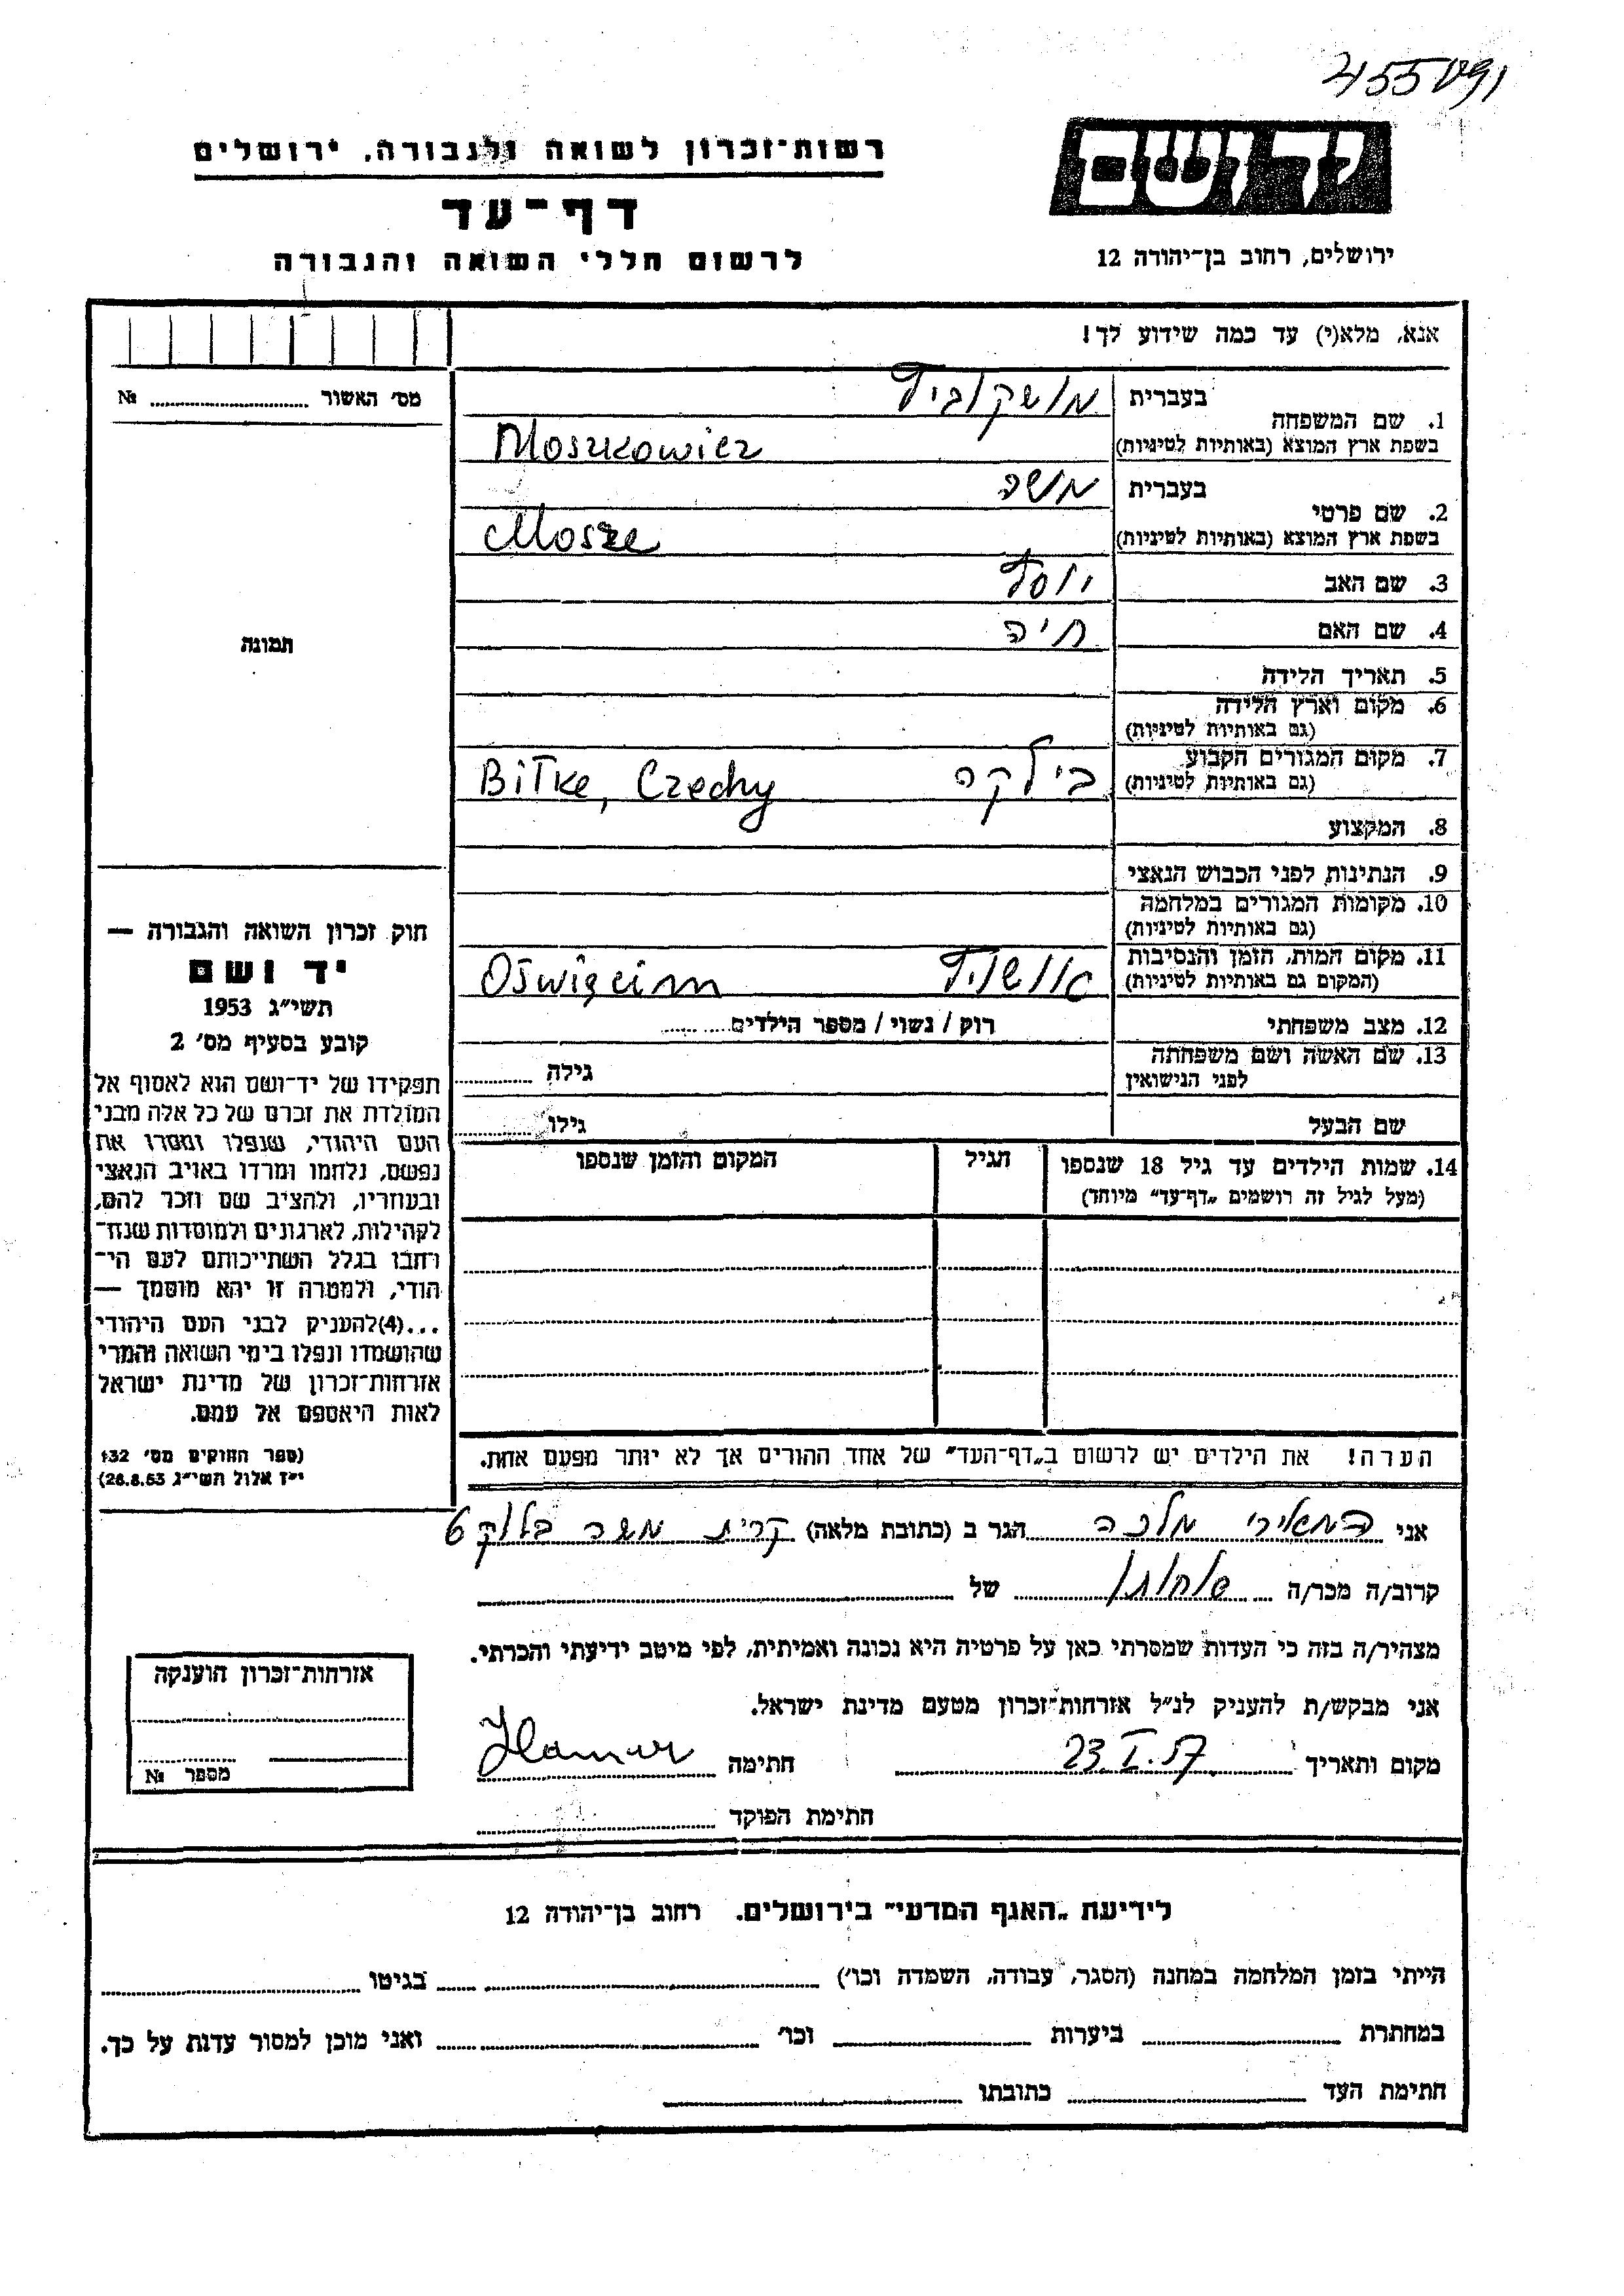 יד ושם
ירושלים, רחוב בן־יהודה 12
רשות־זכרון לשואה ולגבורה, ירושלים
דף־עד
לרשום חללי השואה והגבורה
אנא, מלא(י) עד כמה שידוע לך!
1. שם המשפחה
בעברית מושקוביץ
בשפת ארץ המוצא (באותיות לטיניות) Moszkowicz
2. שם פרטי
בעברית משה
בשפת ארץ המוצא (באותיות לטיניות) Mosze
3. שם האב יוסף
4. שם האם חיה
5. תאריך הלידה
6. מקום וארץ הלידה
(גם באותיות לטיניות)
7. מקום המגורים הקבוע
(גם באותיות לטיניות) בילקה Bilke, Czechy
8. המקצוע
9. הנתינות לפני הכבוש הנאצי
10. מקומות המגורים במלחמה
(גם באותיות לטיניות)
11. מקום המות, הזמן והנסיבות
(המקום גם באותיות לטיניות) Oświęcim
12. מצב משפחתי רוק / נשוי / מספר הילדים
13. שם האשה ושם משפחתה
לפני הנישואין גילה
שם הבעל גילו
14. שמות הילדים עד גיל 18 שנספו הגיל המקום והזמן שנספו
(מעל לגיל זה רושמים „דף־עד״ מיוחד)
הערה! את הילדים יש לרשום ב„דף־העד״ של אחד ההורים אך לא יותר מפעם אחת.
מס׳ האשור №
תמונה
חוק זכרון השואה והגבורה —
יד ושם
תשי״ג 1953
קובע בסעיף מס׳ 2
תפקידו של יד־ושם הוא לאסוף אל
המולדת את זכרם של כל אלה מבני
העם היהודי, שנפלו ומסרו את
נפשם, נלחמו ומרדו באויב הנאצי
ובעוזריו, ולהציב שם וזכר להם,
לקהילות, לארגונים ולמוסדות שנח־
רבו בגלל השתייכותם לעם הי־
הודי, ולמטרה זו יהא מוסמך —
...(4)להעניק לבני העם היהודי
שהושמדו ונפלו בימי השואה והמרי
אזרחות־זכרון של מדינת ישראל
לאות היאספם אל עמם.
(ספר החוקים מס׳ 132
י״ז אלול תשי״ג 28.8.53)
אני המאירי מלכה הגר ב (כתובת מלאה) קרית משה בלוק 6
קרוב/ה מכר/ה של
מצהיר/ה בזה כי העדות שמסרתי כאן על פרטיה היא נכונה ואמיתית, לפי מיטב ידיעתי והכרתי.
אני מבקש/ת להעניק לנ״ל אזרחות־זכרון מטעם מדינת ישראל.
מקום ותאריך 23.I.57 חתימה
חתימת הפוקד
אזרחות־זכרון הוענקה
מספר №
לידיעת „האגף המדעי״ בירושלים. רחוב בן־יהודה 12
הייתי בזמן המלחמה במחנה (הסגר, עבודה, השמדה וכו׳) בגיטו
במחתרת ביערות וכו׳ ואני מוכן למסור עדות על כך.
חתימת העד כתובתו